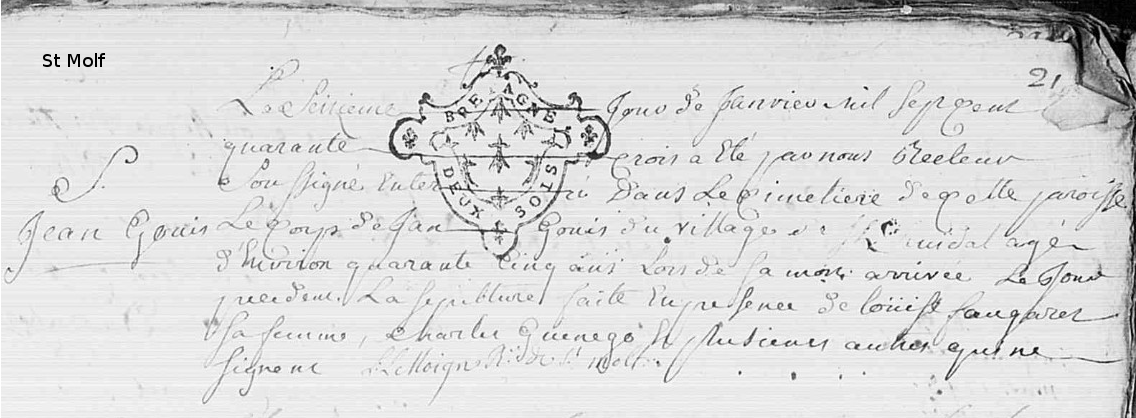 St Molf
21
Le Seizieme Jour de Janvier mil Sept cent
BRETAGNE
DEUX SOLS
quarante trois a Eté par nous Recteur
S.
Soussigné Enterré Dans Le Cimetiere de cette paroisse
Jean Gouis Le corps de Jan Gouis du village de agé
d'Environ quarante Cinq ans Lors de sa mort arrivée Le Jour
precedent. La sepulture faite En presence de Loüise faugaret
Sa femme, Charles Guenego Et plusieurs autres qui ne
signent LeMoigne Rr de St molf.